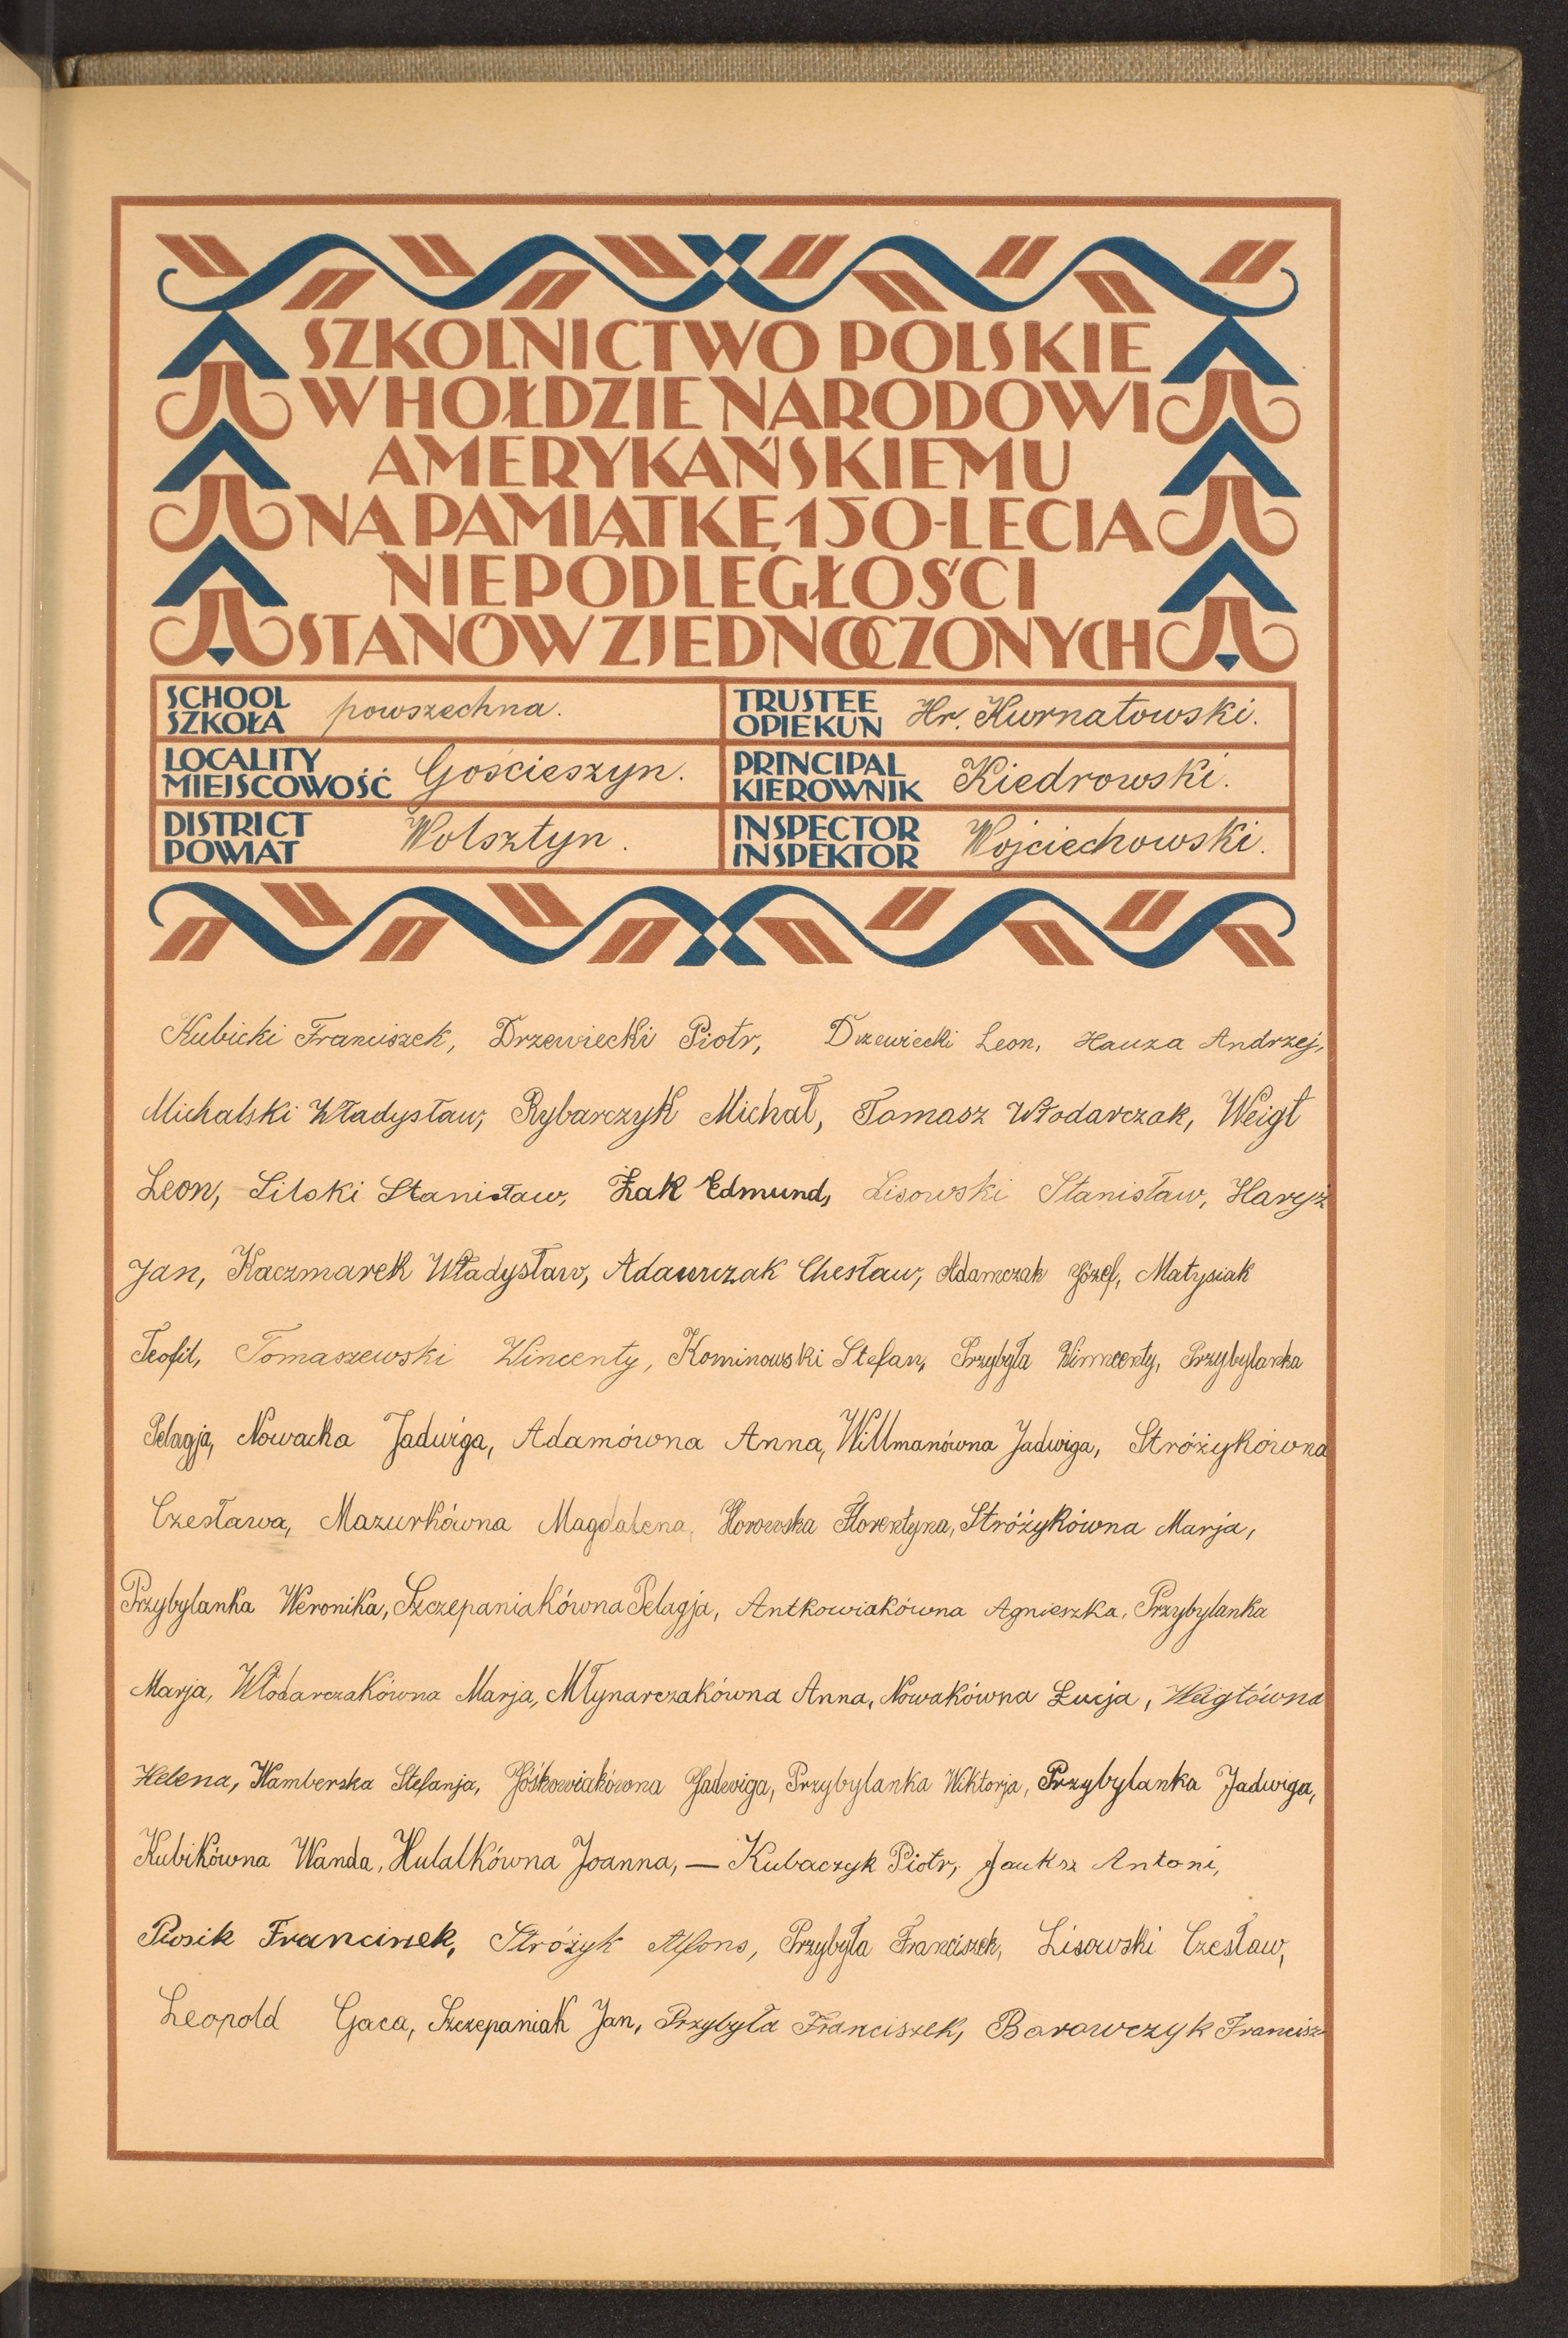 SZKOLNICTWO POLSKIE
W HOŁDZIE NARODOWI
AMERYKAŃSKIEMU
NA PAMIĄTKĘ 150-LECIA
NIEPODLEGŁOŚCI
STANÓW ZJEDNOCZONYCH
SCHOOL
SZKOŁA powszechna.
TRUSTEE
OPIEKUN Hr. Kurnatowski.
LOCALITY
MIEJSCOWOŚĆ Gościeszyn.
PRINCIPAL
KIEROWNIK Kiedrowski.
DISTRICT
POWIAT Wolsztyn.
INSPECTOR
INSPEKTOR Wojciechowski.
Kubicki Franciszek, Drzewiecki Piotr, Drzewiecki Leon, Hauza Andrzej,
Michalski Władysław, Rybarczyk Michał, Tomasz Włodarczak, Weigt
Leon, Silski Stanisław, Żak Edmund, Lisowski Stanisław, Haryś
Jan, Kaczmarek Władysław, Adamczak Chesław, Adamczak Józef, Matysiak
Teofil, Tomaszewski Wincenty, Kominowski Stefan, Przybyła Winncenty, Przybylanka
Pelagja, Nowacka Jadwiga, Adamówna Anna, Willmanówna Jadwiga, Stróżykówna
Czesława, Mazurkówna Magdalena, Florentyna, Stróżykówna Marja,
Przybylanka Weronika, Szczepaniakówna Pelagja, Antkowiakówna Agnieszka, Przybylanka
Marja, Włodarczakówna Marja, Młynarczakówna Anna, Nowakówna Łucja, Weigtówna
Helena, Wamberska Stefanja, Jóśkowiakówna Jadwiga, Przybylanka Wiktorja, Przybylanka Jadwiga,
Kubikówna Wanda, Hulalkówna Joanna, — Kubaczyk Piotr, Jauksz Antoni,
Piosik Francinek, Stróżyk Alfons, Przybyła Franciszek, Lisowski Czesław,
Leopold Gaca, Szczepaniak Jan, Przybyła Franciszek, Barawczyk Francisz